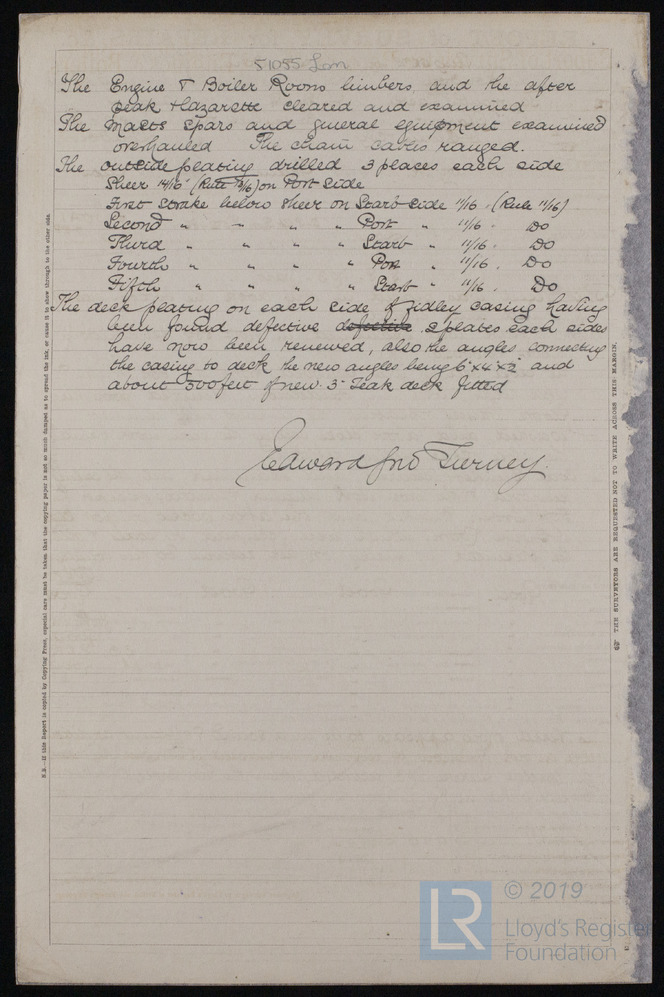 51055 Lon
The Engine & Boiler Rooms limbers and the after
peak & Lazarette cleared and examined
The Masts Spars and general equipment examined
overhauled The chain cables ranged.
The outside plating drilled 3 places each side
Sheer 14/16" (Rule /16) on Port side
First Strake below sheer on Starb side 11/16 . (Rule 11/16)
Second " " " " Port " 11/16 . Do
Third " " " " Starb " 11/16 . Do
Fourth " " " " Port " 11/16 . Do
Fifth " " " " Starb " 11/16 . Do
The deck plating on each side of fidley casing having
been found defective defective 2 plates each sides
have now been renewed, also the angles connecting
the casing to deck the new angles being 6"x4"x½ and
about 500 feet of new 3" Teak deck fitted
Edward Jno Tierney.
N.B.—If this Report is copied by Copying Press, especial care must be taken that the copying paper is not so much damped as to spread the ink, or cause it to show through to the other side.
THE SURVEYORS ARE REQUESTED NOT TO WRITE ACROSS THIS MARGIN.
LR
© 2019
Lloyd's Register
Foundation